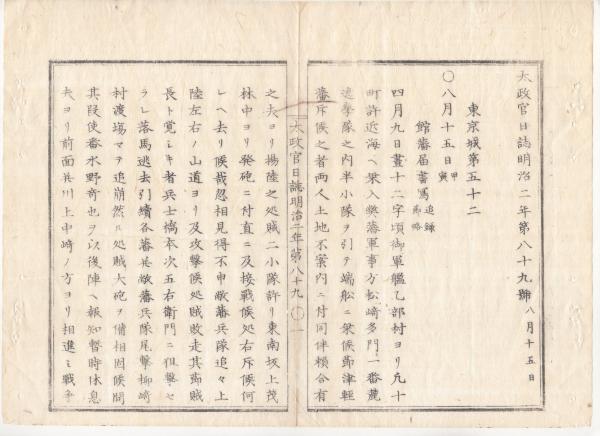 太政官日誌明治二年第八十九號 八月十五日
東京城第五十二
〇八月十五日 甲寅
館藩届書寫 追録 節略
四月九日晝十二字頃御軍艦乙部村ヨリ凡十
町許近海ヘ乗入弊藩軍事方松崎多門一番
進撃隊之内半小隊ヲ引テ端船ニ乗候節津軽
藩斥候之者両人土地不案内ニ付同伴頼合有
太政官日誌明治二年第八十九 〇一
之夫ヨリ揚陸之処賊二小隊許リ東南坂上茂
林中ヨリ発砲ニ付直ニ及接戦候処右斥候何
レヘ去リ候哉忽相見得不申敝藩兵隊追々上
陸左右ノ山道ヨリ及攻撃候処賊敗走其節賊
長ト覚シキ者兵士橋本次五右衛門ニ狙撃セ
ラレ落馬逃去引續各藩并敝藩兵隊尾撃柳崎
村渡場マテ追崩然ル処賊大砲ヲ備相固候間
其段使番水野奇也ヲ以後陣ヘ報知暫時休息
夫ヨリ前面共川上中崎ノ方ヨリ相進ミ戦争